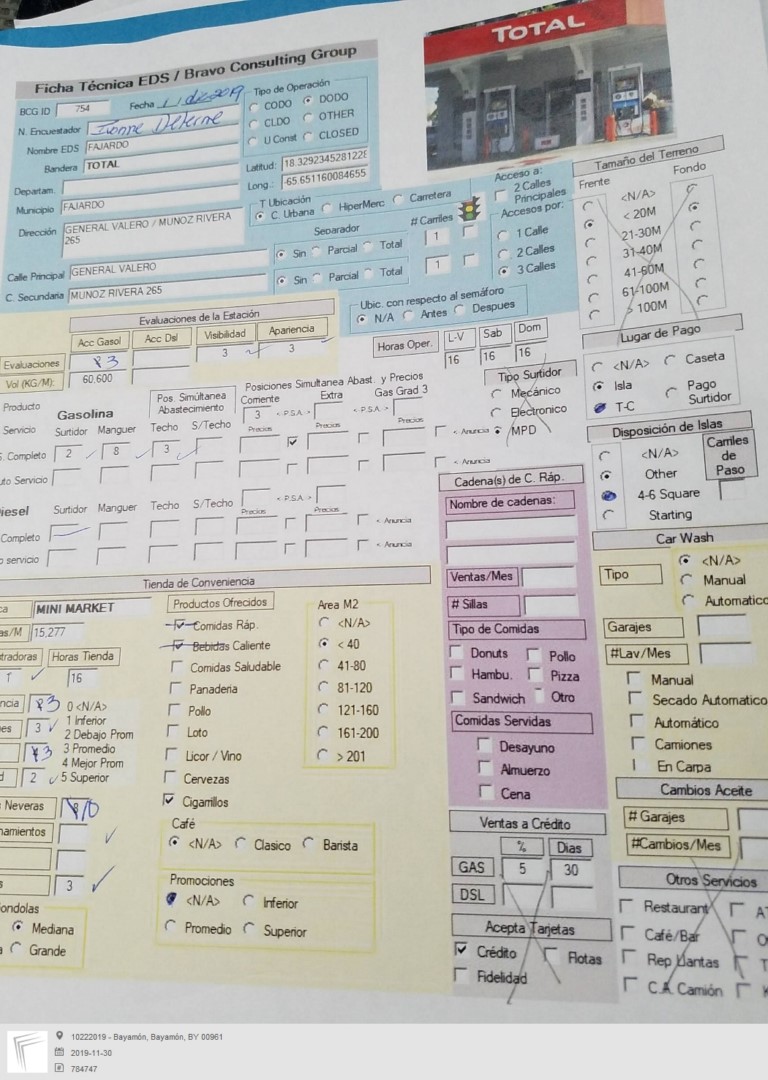 TOTAL
Ficha Técnica EDS / Bravo Consulting Group
BCG ID 754 Fecha
N. Encuestador Ivonne
Nombre EDS FAJARDO
Bandera TOTAL
Departam.
Municipio FAJARDO
Dirección GENERAL VALERO / MUNOZ RIVERA
265
Calle Principal GENERAL VALERO
C. Secundaria MUNOZ RIVERA 265
Tipo de Operación
CODO DODO
CLDO OTHER
U Const CLOSED
Latitud: 18.3292345281228
Long.: -65.651160084655
T Ubicación
C. Urbana HiperMerc Carretera
Separador # Carriles
Sin Parcial Total 1
Sin Parcial Total 1
Acceso a:
2 Calles
Principales
Accesos por:
1 Calle
2 Calles
3 Calles
Ubic. con respecto al semáforo
N/A Antes Despues
Tamaño del Terreno
Frente Fondo
<N/A>
< 20M
21-30M
31-40M
41-60M
61-100M
> 100M
Evaluaciones de la Estación
Acc Gasol Acc Dsl Visibilidad Apariencia
Evaluaciones 3 3 3
Vol (KG/M): 60.600
Horas Oper. L-V Sab Dom
16 16 16
Lugar de Pago
<N/A> Caseta
Isla Pago
T-C Surtidor
Posiciones Simultanea Abast. y Precios
Producto Gasolina
Pos. Simúltanea
Abastecimiento
Corriente Extra Gas Grad 3
3 < P.S.A.-> < P.S.A.->
Servicio Surtidor Manguer Techo S/Techo Precios Precios Precios
Completo 2 8 3 < Anuncia
uto Servicio < Anuncia
Tipo Surtidor
Mecánico
Electronico
MPD
iesel Surtidor Manguer Techo S/Techo < P.S.A.->
Precios Precios
Completo < Anuncia
o servicio < Anuncia
Disposición de Islas
<N/A> Carriles
Other de
4-6 Square Paso
Starting
Cadena(s) de C. Ráp.
Nombre de cadenas:
Ventas/Mes
# Sillas
Tipo de Comidas
Donuts Pollo
Hambu. Pizza
Sandwich Otro
Comidas Servidas
Desayuno
Almuerzo
Cena
Car Wash
Tipo <N/A>
Manual
Automatico
Garajes
#Lav/Mes
Manual
Secado Automatico
Automático
Camiones
En Carpa
Tienda de Conveniencia
ca MINI MARKET
as/M 15,277
tradoras Horas Tienda
1 16
ncia 3 0 <N/A>
es 3 1 Inferior
2 Debajo Prom
3 3 Promedio
4 Mejor Prom
d 2 5 Superior
Neveras
namientos
s 3
ondolas
Mediana
Grande
Productos Ofrecidos
Comidas Ráp.
Bebidas Caliente
Comidas Saludable
Panaderia
Pollo
Loto
Licor / Vino
Cervezas
Cigarrillos
Area M2
<N/A>
< 40
41-80
81-120
121-160
161-200
> 201
Café
<N/A> Clasico Barista
Promociones
<N/A> Inferior
Promedio Superior
Ventas a Crédito
% Dias
GAS 5 30
DSL
Acepta Tarjetas
Crédito Flotas
Fidelidad
Cambios Aceite
# Garajes
#Cambios/Mes
Otros Servicios
Restaurant AT
Café/Bar O
Rep Llantas T
C.A. Camión
10222019 - Bayamón, Bayamón, BY 00961
2019-11-30
784747